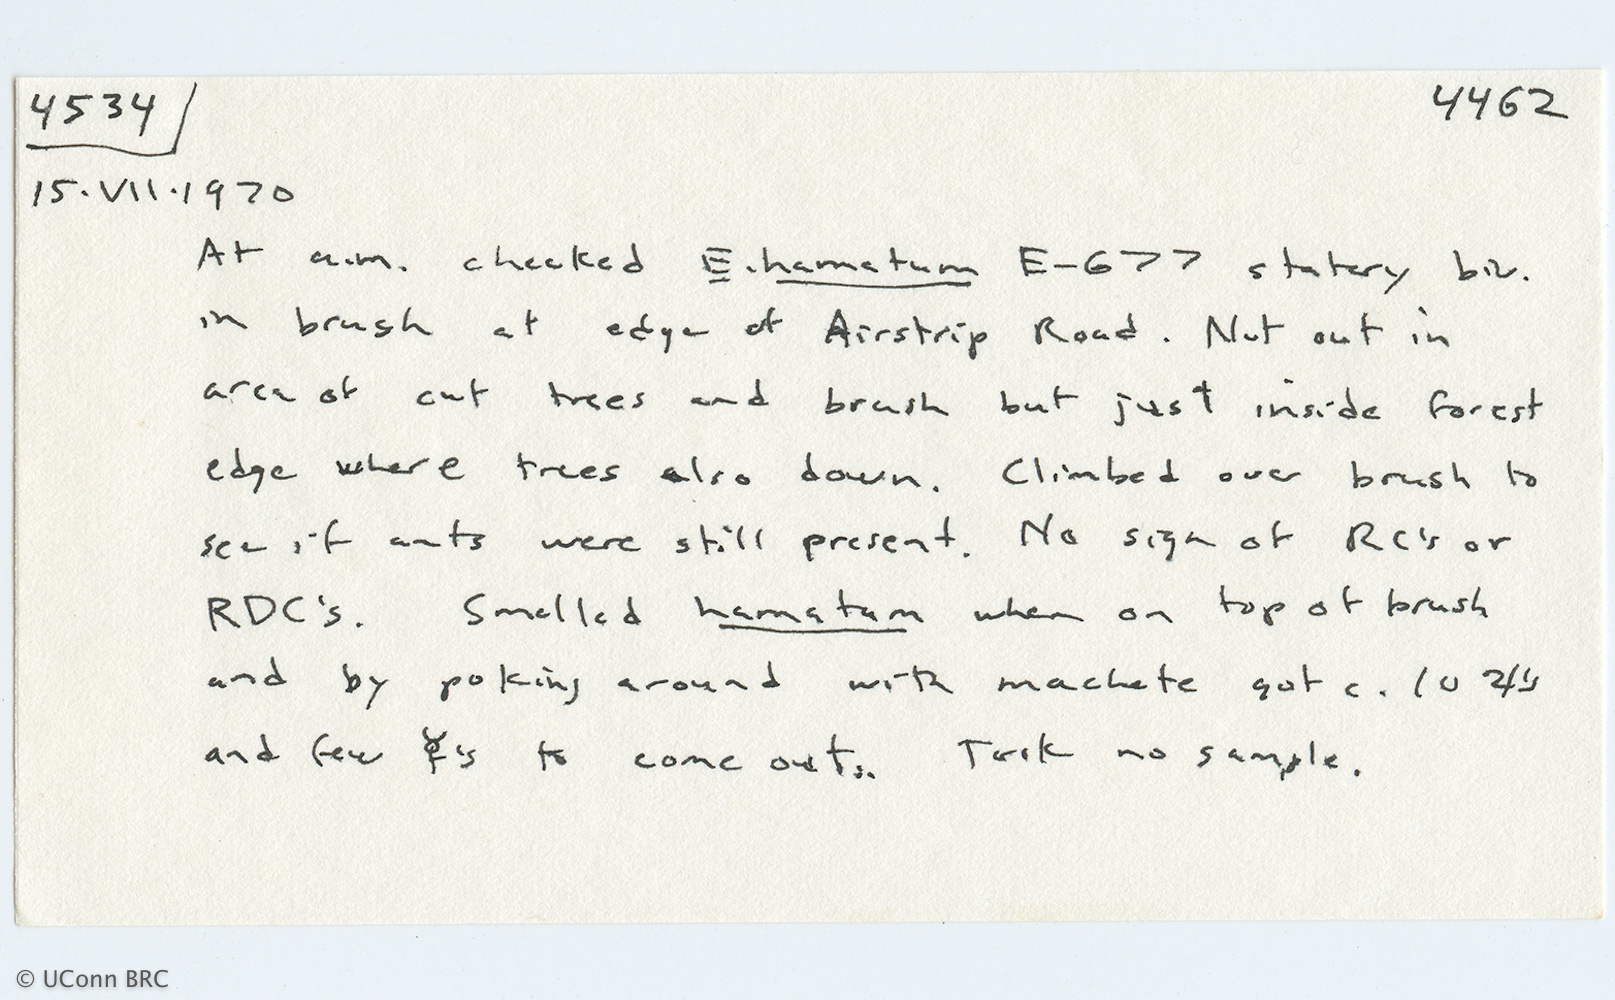 4534 4462
15.VII.1970
At a.m. checked E. hamatum E-677 statary biv.
in brush at edge of Airstrip Road. Not out in
area of cut trees and brush but just inside forest
edge where trees also down. Climbed over brush to
see if ants were still present. No sign of RC's or
RDC's. Smelled hamatum when on top of brush
and by poking around with machete got c. 10 ♃'s
and few ☿'s to come out. Took no sample.
© UConn BRC